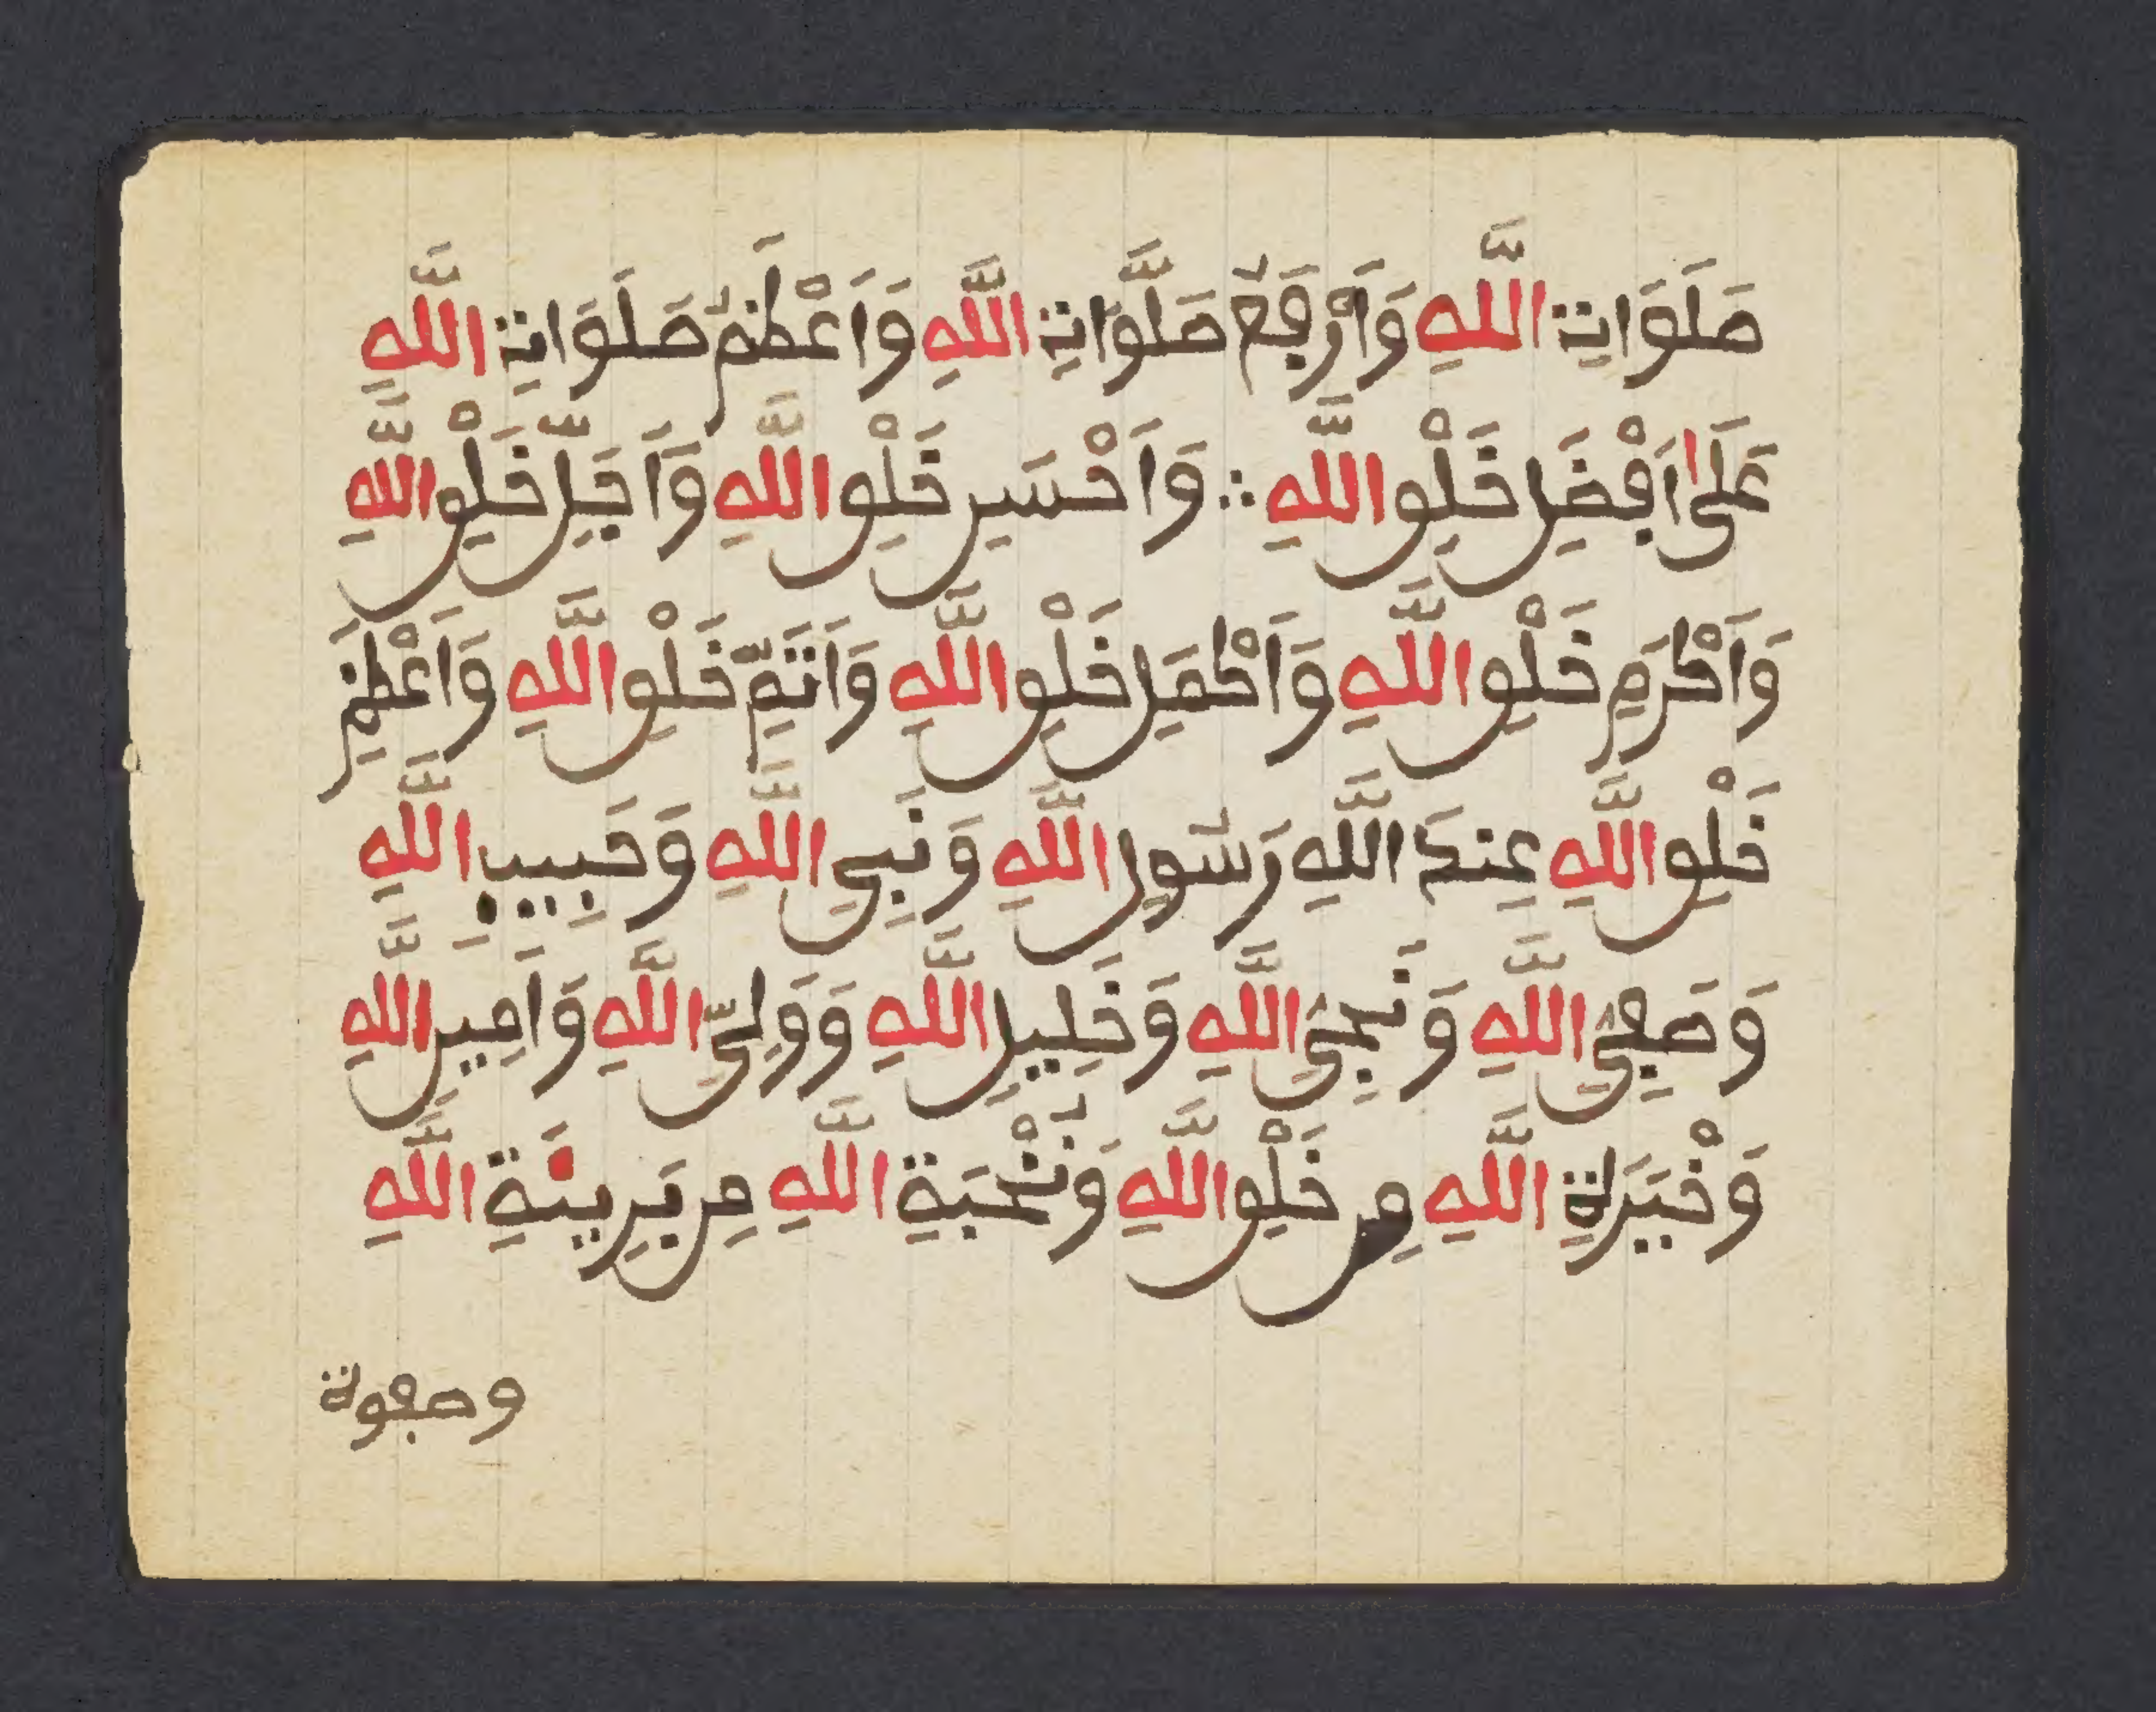 صَلَوَاتِ اللَّهِ وَأَرْفَعُ صَلَوَاتِ اللَّهِ وَاَعْظَمُ صَلَوَاتِ اللَّهِ
عَلَىٰ اَفْضَلِ خَلْقِ اللَّهِ ∴ وَاَحْسَنِ خَلْقِ اللَّهِ وَاَجَلِّ خَلْقِ اللَّهِ
وَاَكْرَمِ خَلْقِ اللَّهِ وَاَكْمَلِ خَلْقِ اللَّهِ وَاَتَمِّ خَلْقِ اللَّهِ وَاَعْظَمِ
خَلْقِ اللَّهِ عِندَ اللَّهِ رَسُولِ اللَّهِ وَنَبِيِ اللَّهِ وَحَبِيبِ اللَّهِ
وَصَفِيِّ اللَّهِ وَنَجِيِّ اللَّهِ وَخَلِيلِ اللَّهِ وَوَلِيِّ اللَّهِ وَاَمِينِ اللَّهِ
وَخْيَرَةِ اللَّهِ مِن خَلْقِ اللَّهِ وَنُخْبَةِ اللَّهِ مِن بَرِيئَةِ اللَّهِ
وصفوة